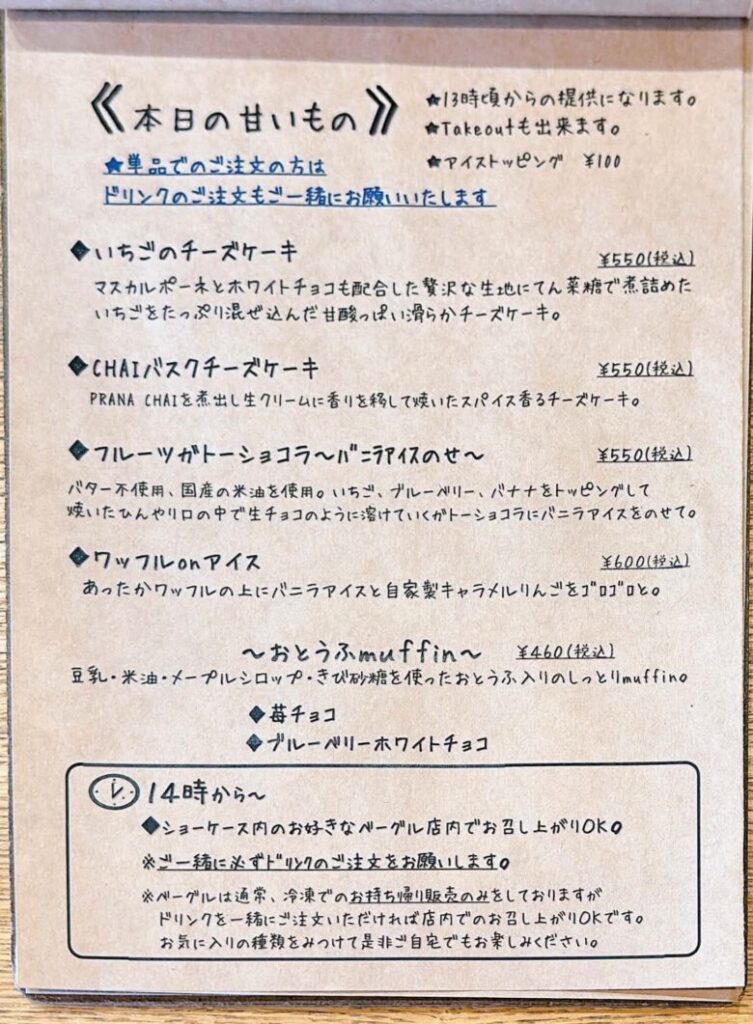 《本日の甘いもの》
★13時頃からの提供になります。
★Takeoutも出来ます。
★アイストッピング ¥100
★単品でのご注文の方は
ドリンクのご注文もご一緒にお願いいたします
◆いちごのチーズケーキ ¥550(税込)
マスカルポーネとホワイトチョコも配合した贅沢な生地にてん菜糖で煮詰めた
いちごをたっぷり混ぜ込んだ甘酸っぱい滑らかチーズケーキ。
◆CHAIバスクチーズケーキ ¥550(税込)
PRANA CHAIを煮出し生クリームに香りを移して焼いたスパイス香るチーズケーキ。
◆フルーツガトーショコラ〜バニラアイスのせ〜 ¥550(税込)
バター不使用、国産の米油を使用。いちご、ブルーベリー、バナナをトッピングして
焼いたひんやり口の中で生チョコのように溶けていくガトーショコラにバニラアイスをのせて。
◆ワッフルonアイス ¥600(税込)
あったかワッフルの上にバニラアイスと自家製キャラメルりんごをゴロゴロと。
〜おとうふmuffin〜 ¥460(税込)
豆乳・米油・メープルシロップ・きび砂糖を使ったおとうふ入りのしっとりmuffin。
◆苺チョコ
◆ブルーベリーホワイトチョコ
14時から〜
◆ショーケース内のお好きなベーグル店内でお召し上がりOK。
※ご一緒に必ずドリンクのご注文をお願いします。
※ベーグルは通常、冷凍でのお持ち帰り販売のみをしておりますが
ドリンクを一緒にご注文いただければ店内でのお召し上がりOKです。
お気に入りの種類をみつけて是非ご自宅でもお楽しみください。